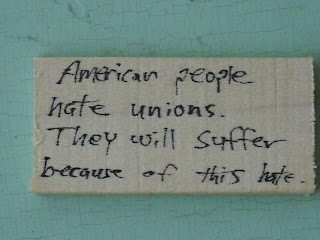 American people
hate unions.
They will suffer
because of this hate.